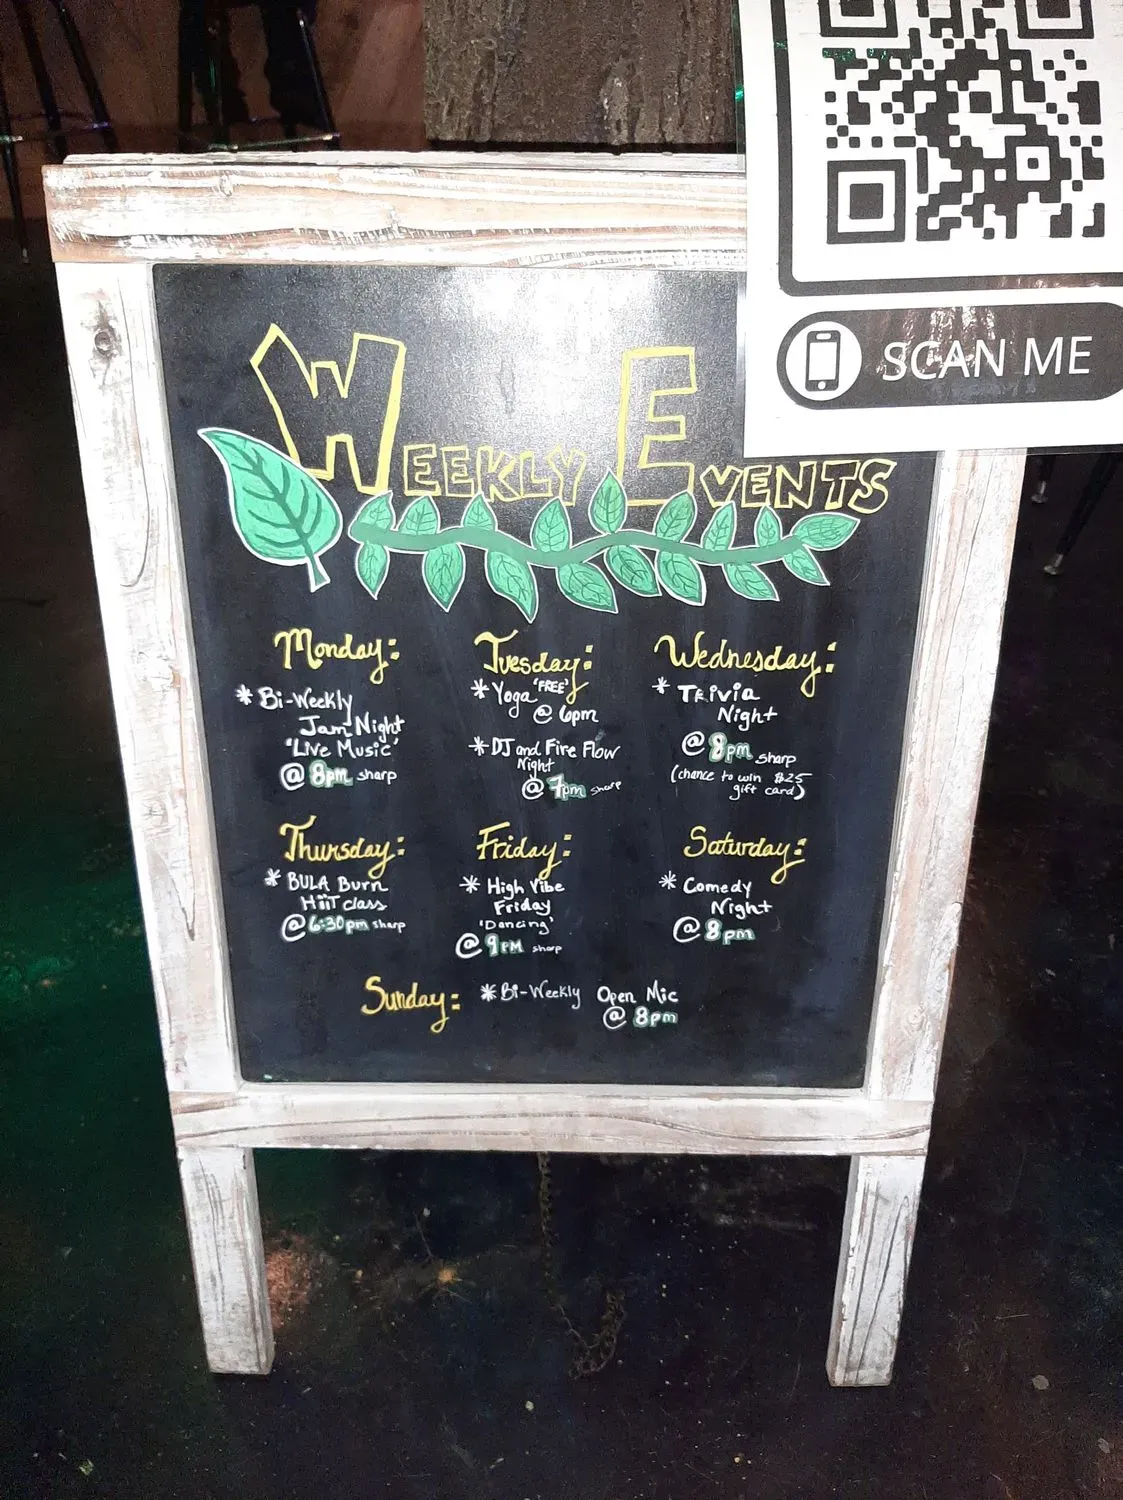 SCAN ME
WEEKLY EVENTS
Monday:
* Bi-Weekly
Jam Night
'Live Music'
@ 8pm sharp
Tuesday:
* Yoga 'FREE'
@ 6pm
* DJ and Fire Flow
Night
@ 7pm sharp
Wednesday:
* Trivia
Night
@ 8pm sharp
(chance to win $25
gift card)
Thursday:
* BULA Burn
HiiT class
@ 6:30pm sharp
Friday:
* High Vibe
Friday
'Dancing'
@ 9PM sharp
Saturday:
* Comedy
Night
@ 8pm
Sunday: * Bi-Weekly Open Mic
@ 8pm